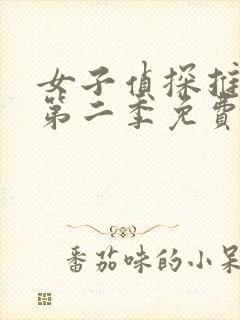 女子偵探推
第二季免費
番茄味的小呆